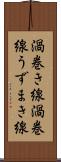 渦巻き線渦巻
線うずまき線